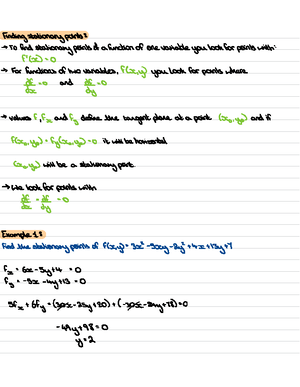 Finding stationary points:
→ To find stationary points of a function of one variable you look for points with:
f'(x) = 0
→ For functions of two variables, f(x,y) you look for points where
∂f/∂x = 0 and ∂f/∂y = 0
→ values f, fx and fy define the tangent plane at a point (x₀, y₀) and if
fx(x₀, y₀) = fy(x₀, y₀) = 0 it will be horizontal
(x₀, y₀) will be a stationary point
→ We look for points with
∂f/∂x = ∂f/∂y = 0
Example 1:
Find the stationary points of f(x,y) = 3x² - 5xy - 2y² + 4x + 13y + 7
fx = 6x - 5y + 4 = 0
fy = -5x - 4y + 13 = 0
5fx + 6fy = (30x - 25y + 20) + (-30x - 24y + 78) = 0
-49y + 98 = 0
y = 2